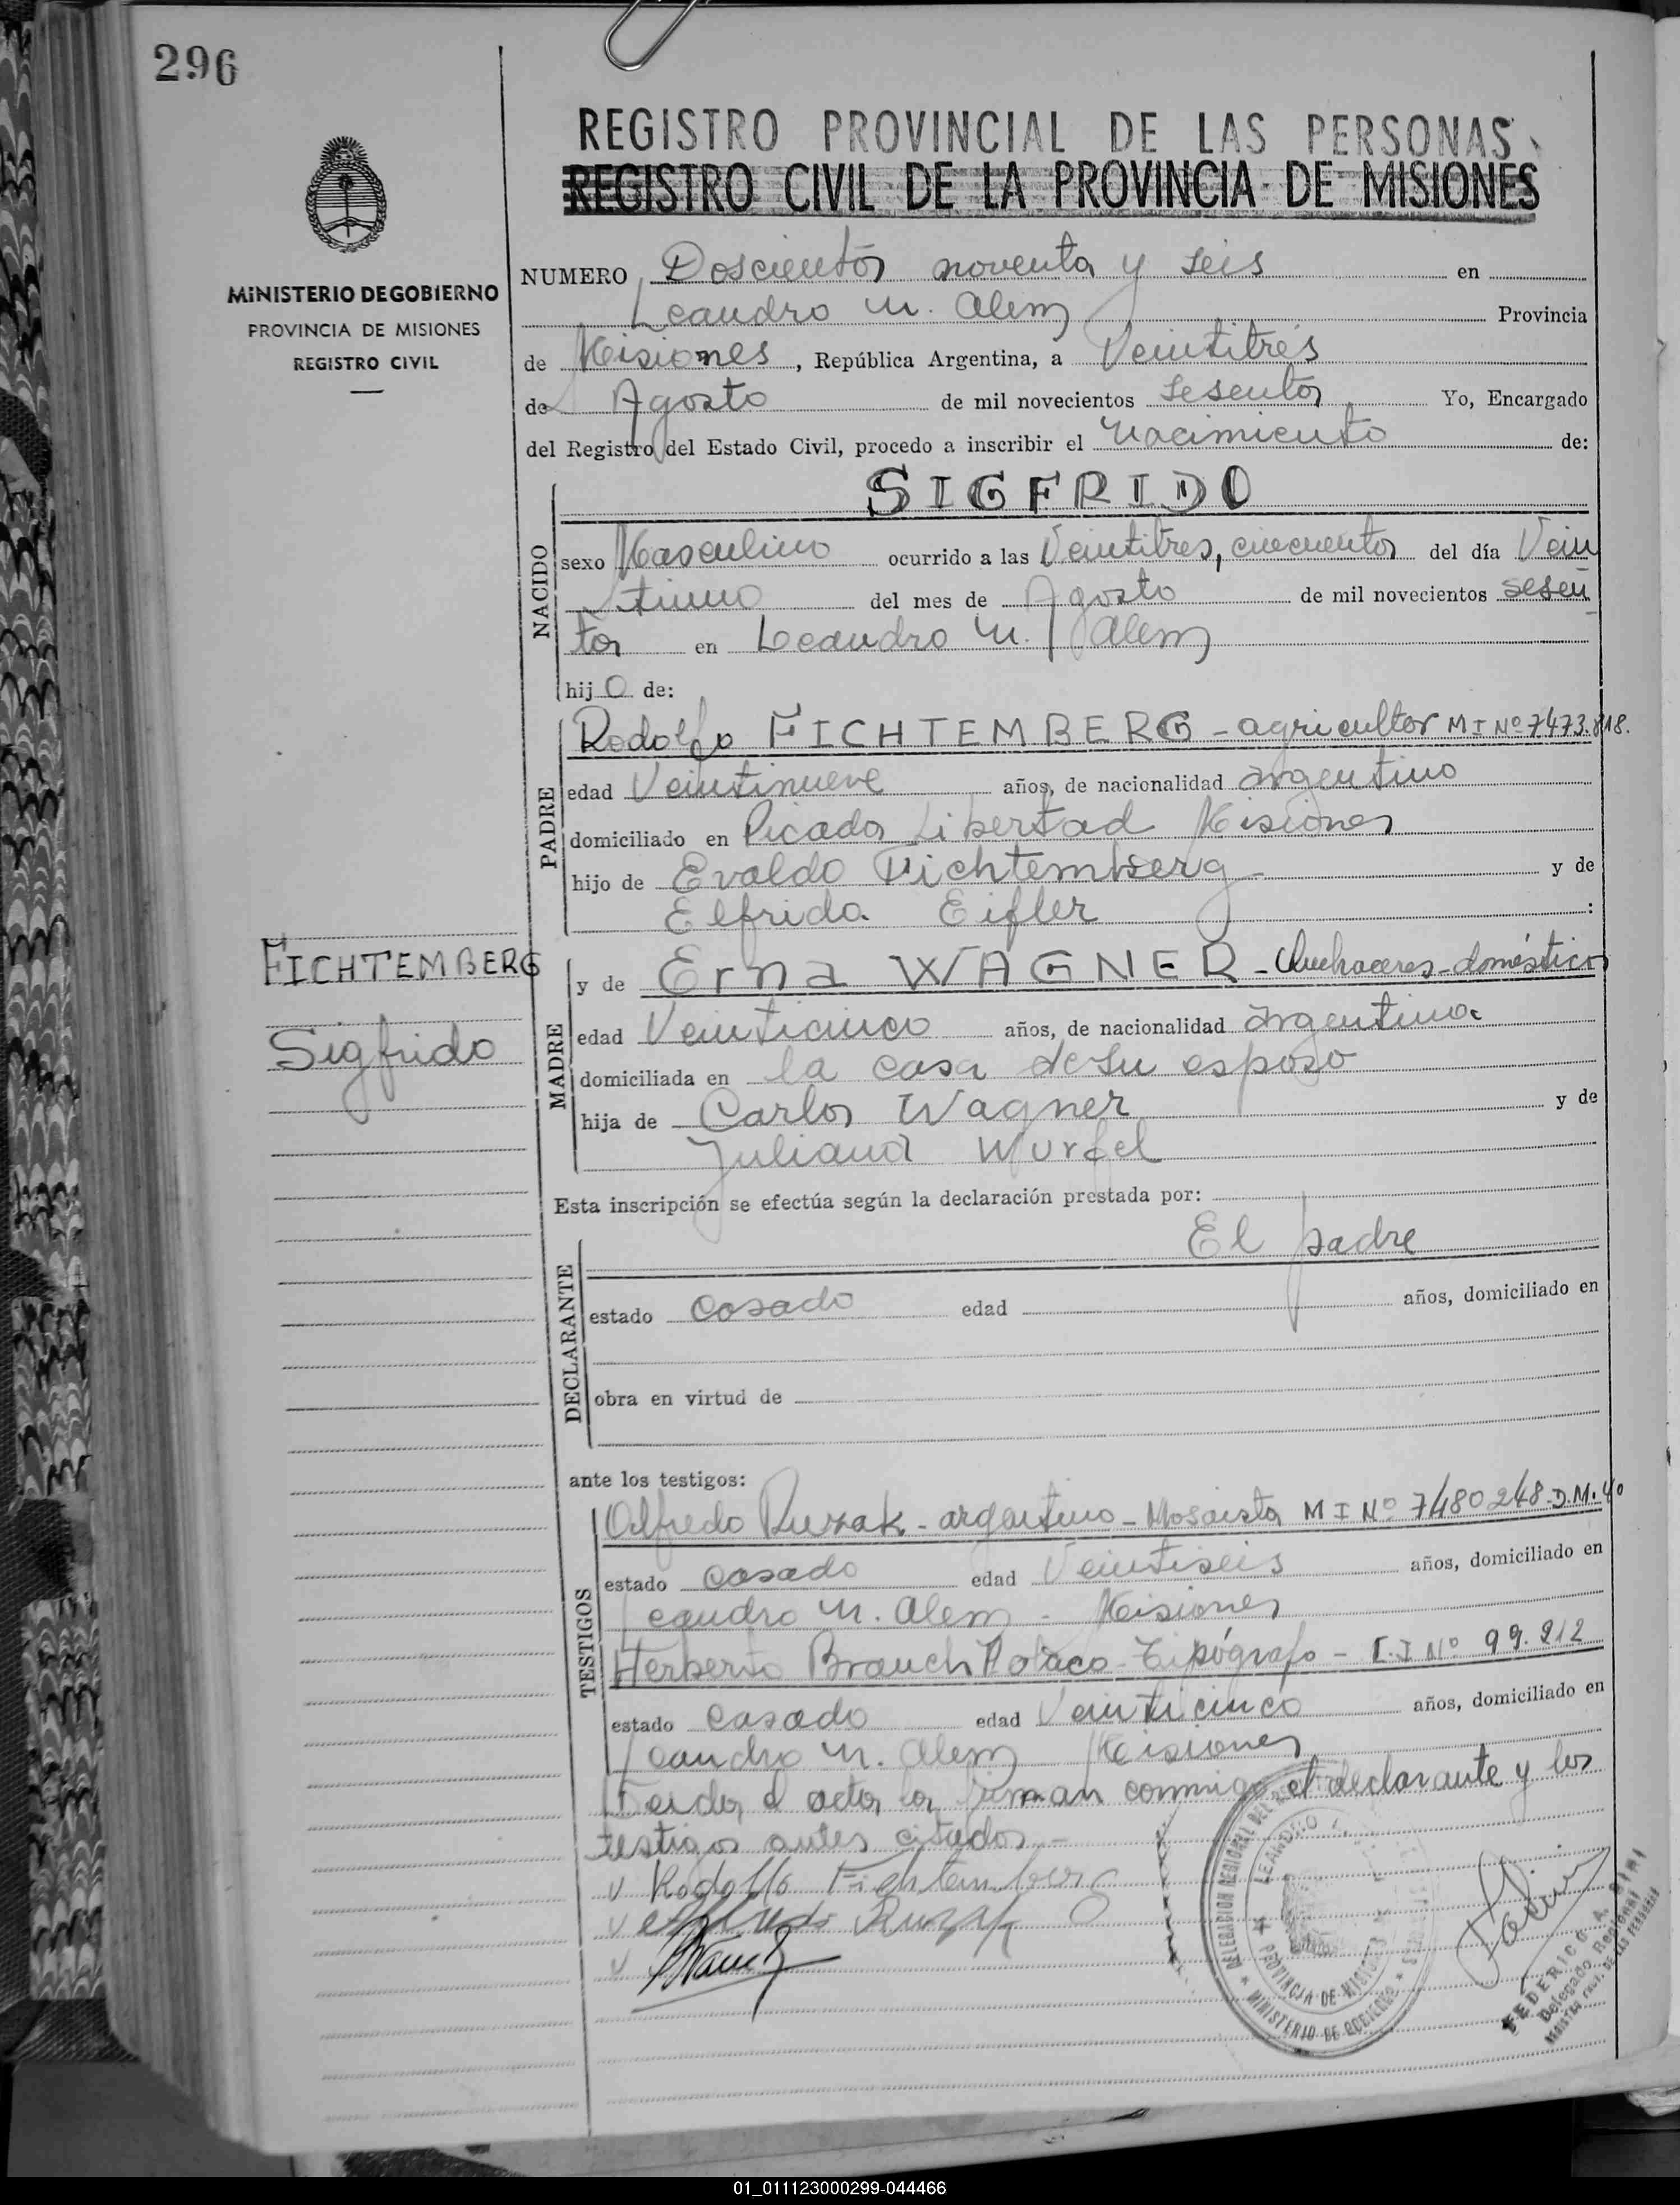 296
REGISTRO PROVINCIAL DE LAS PERSONAS
REGISTRO CIVIL DE LA PROVINCIA DE MISIONES
MINISTERIO DE GOBIERNO
PROVINCIA DE MISIONES
REGISTRO CIVIL
NUMERO Doscientos noventa y seis en
Leandro N. Alem Provincia
de Misiones, República Argentina, a Veintitrés
de Agosto de mil novecientos sesenta Yo, Encargado
del Registro del Estado Civil, procedo a inscribir el Nacimiento de:
SIGFRIDO
NACIDO
sexo Masculino ocurrido a las Veintitres, cincuenta del día Vein
tiuno del mes de Agosto de mil novecientos sesen
ta en Leandro N. Alem
hijo de:
PADRE
Rodolfo FICHTEMBERG - agricultor M I Nº 7473.818.
edad Veintinueve años, de nacionalidad argentino
domiciliado en Picada Libertad Misiones
hijo de Evaldo Fichtemberg y de
Elfrida Eifler :
FICHTEMBERG
Sigfrido
MADRE
y de Erna WAGNER - Quehaceres domésticos
edad Veinticinco años, de nacionalidad argentina
domiciliada en la casa de su esposo
hija de Carlos Wagner y de
Juliana Wurfel
Esta inscripción se efectúa según la declaración prestada por:
El padre
DECLARANTE
estado casado edad años, domiciliado en
obra en virtud de
ante los testigos:
TESTIGOS
Alfredo Ruzak - argentino - Mosaista M I Nº 7480248 D.M. 40
estado casado edad Veintiseis años, domiciliado en
Leandro N. Alem - Misiones
Herberto Brauch Polaco - Tipógrafo - C.I Nº 99.212
estado casado edad Veinticinco años, domiciliado en
Leandro N. Alem Misiones
Leida el acta la firman conmigo el declarante y los
testigos antes citados -
Rodolfo Fichtemberg
Alfredo Ruzak
Brauch
DELEGACION REGIONAL DEL
LEANDRO
PROVINCIA DE MISIONES
MINISTERIO DE GOBIERNO
FEDERICO A.
Delegado Regional
DE LAS PERSONAS
01_011123000299-044466